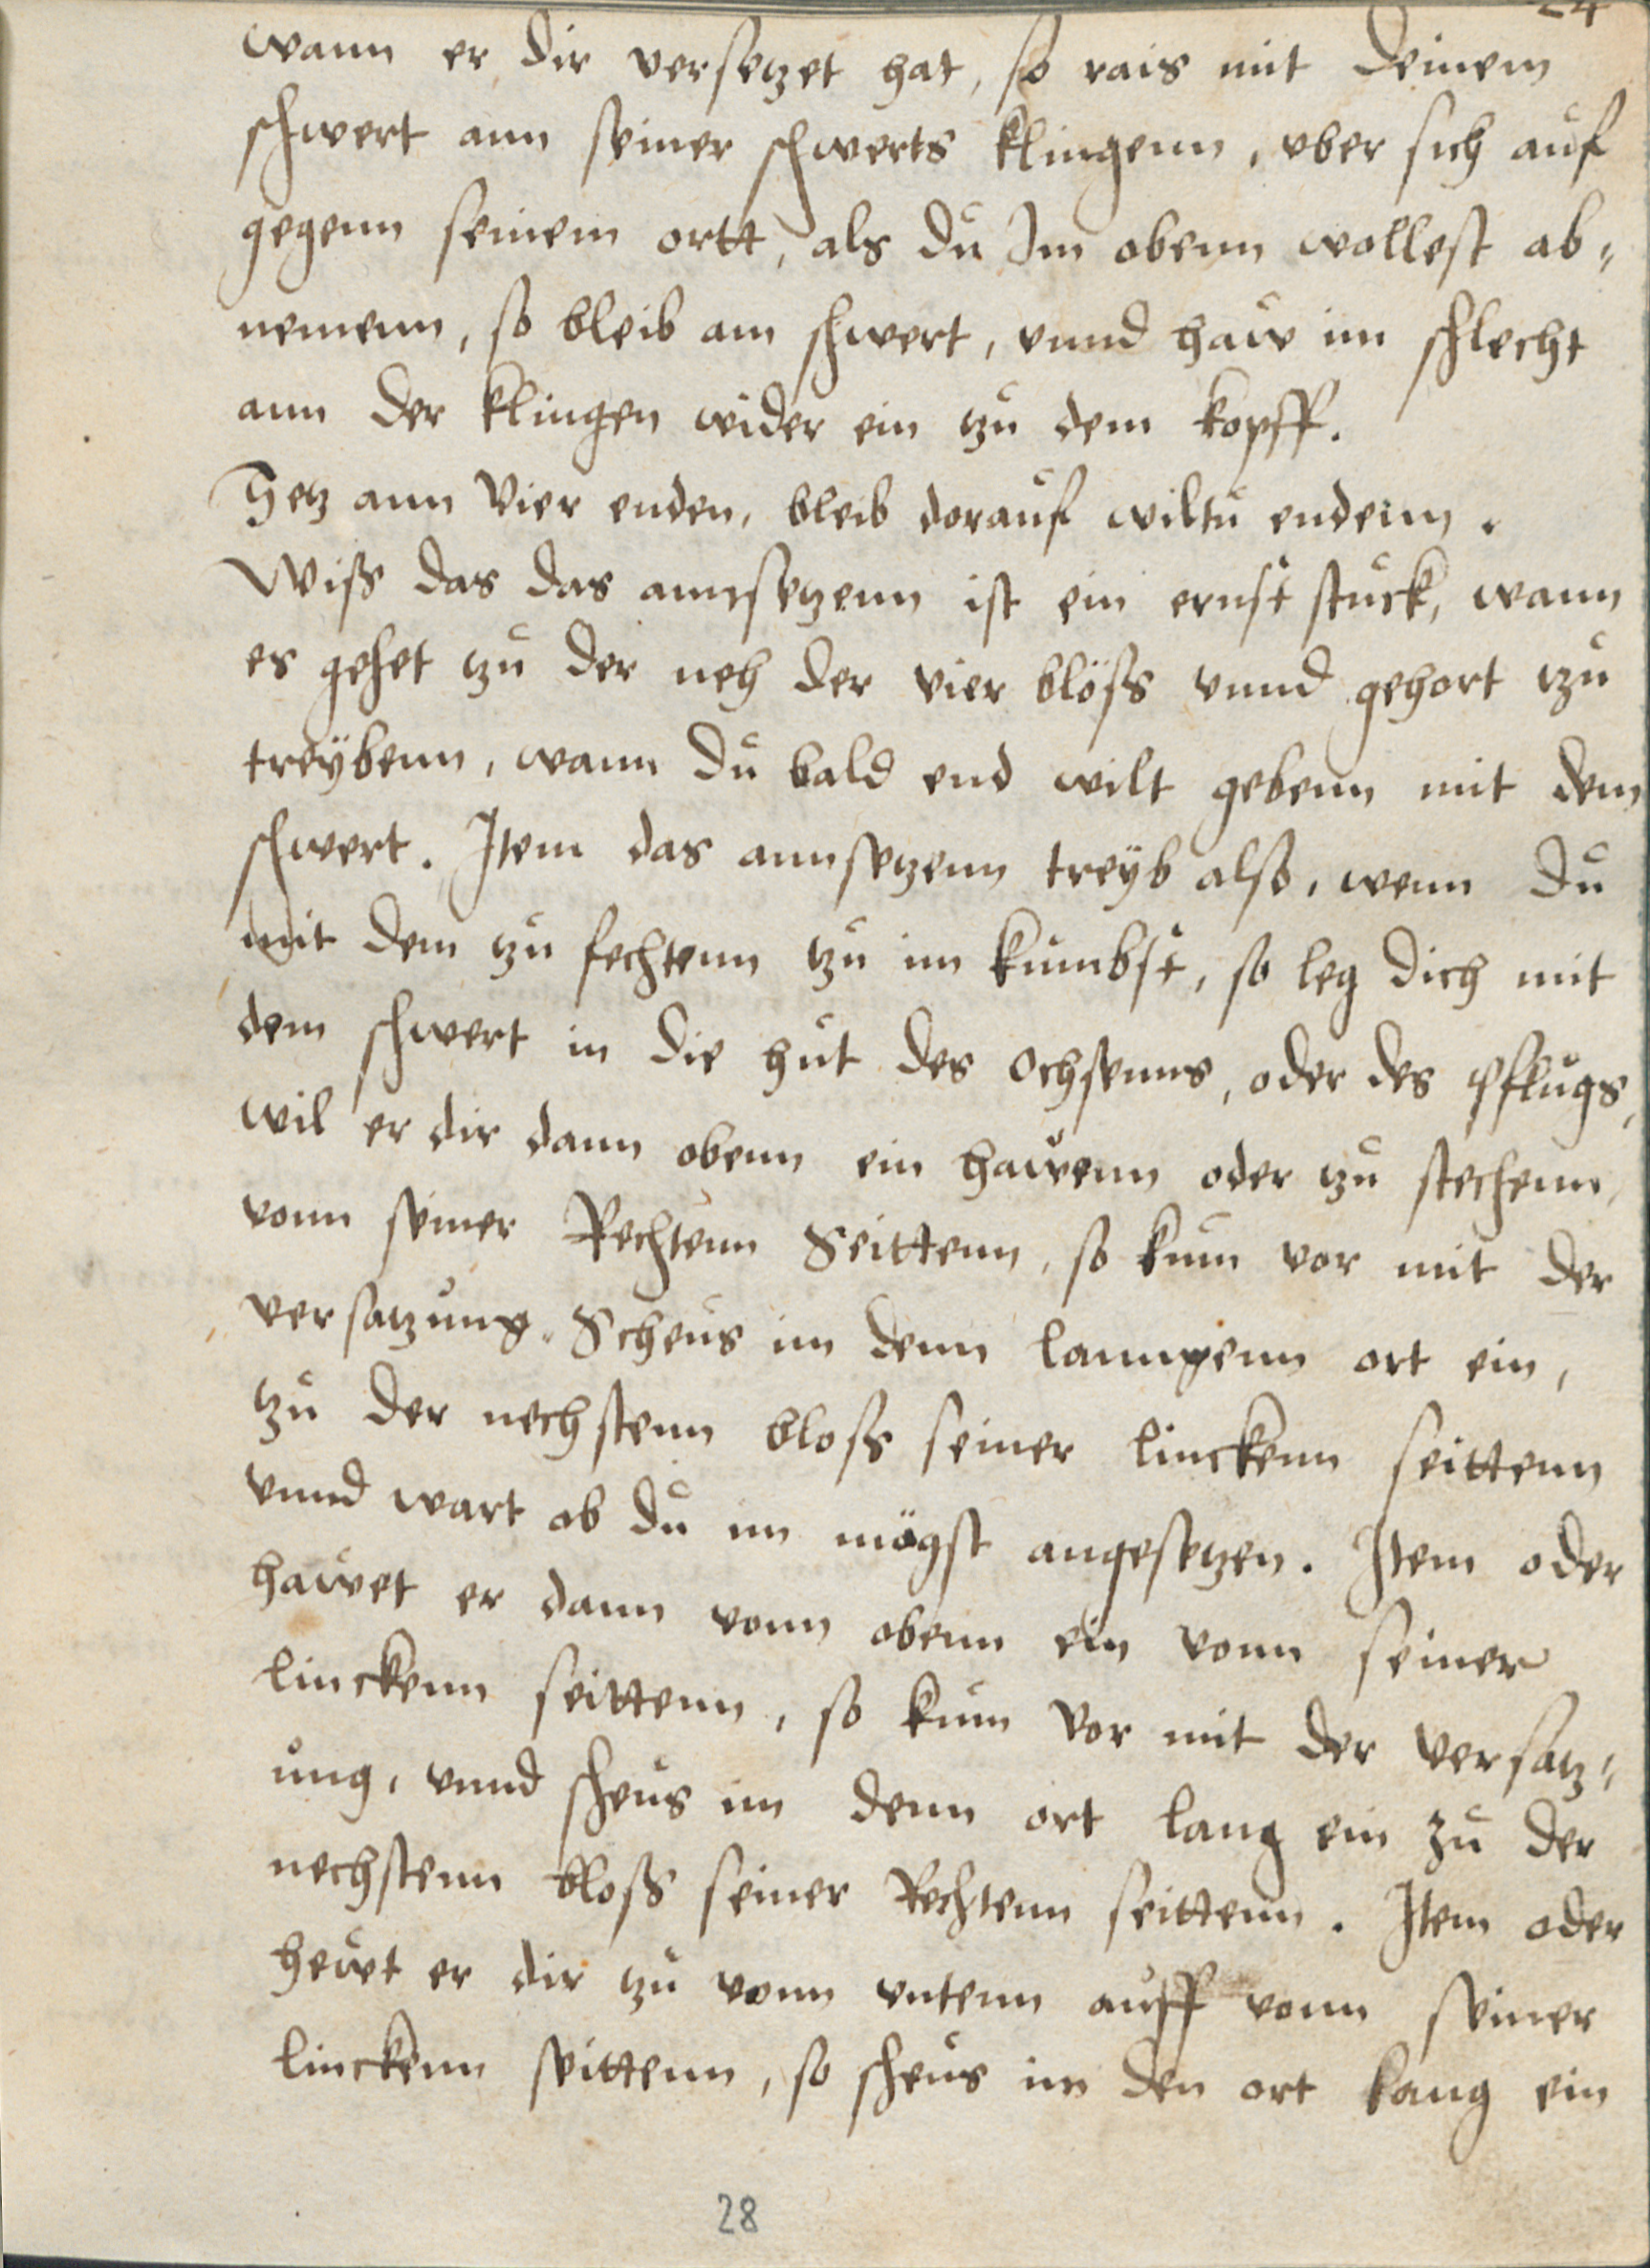 24
wann er dir versetzet hat, so rais mit deinem
schwert ann seiner schwerts klingenn, vber sich auf
gegenn seinem ortt, als du Im obenn wollest ab„
nemenn, so bleib am schwert, vnnd haw im schlecht
ann der klingen wider ein tzu dem kopff.
Setz ann vier enden, bleib dorauf wiltu endenn.
Wiss das das annsetzenn ist ein ernst stuck, wann
es gehet tzu der neh der vier blöss vnnd gehort tzu
treÿbenn, wann du bald end wilt gebenn mit dem
schwert. Item das annsetzenn treÿb also, wenn du
mit dem tzu fechtenn tzu im kumbst, so leg dich mit
dem schwert in die hut des ochsenns, oder des pflugs,
wil er dir dann obenn ein hawenn oder tzu stechenn,
vonn seiner Rechtenn Seittenn, so kum vor mit der
versatzung. Scheus im denn lanngenn ort ein,
tzu der nechstenn bloss seiner linckenn seittenn
vnnd wart ob du im mögst angesetzen. Item oder
hawet er dann vonn obenn ein vonn seiner
linckenn seittenn, so kum vor mit der versatz„
ung, vnnd scheus im denn ort lang ein zu der
nechstenn bloss seiner Rechtenn seittenn. Item oder
hewt er dir tzu vonn vntenn auff vonn seiner
linckenn seittenn, so scheus im den ort lang ein
28